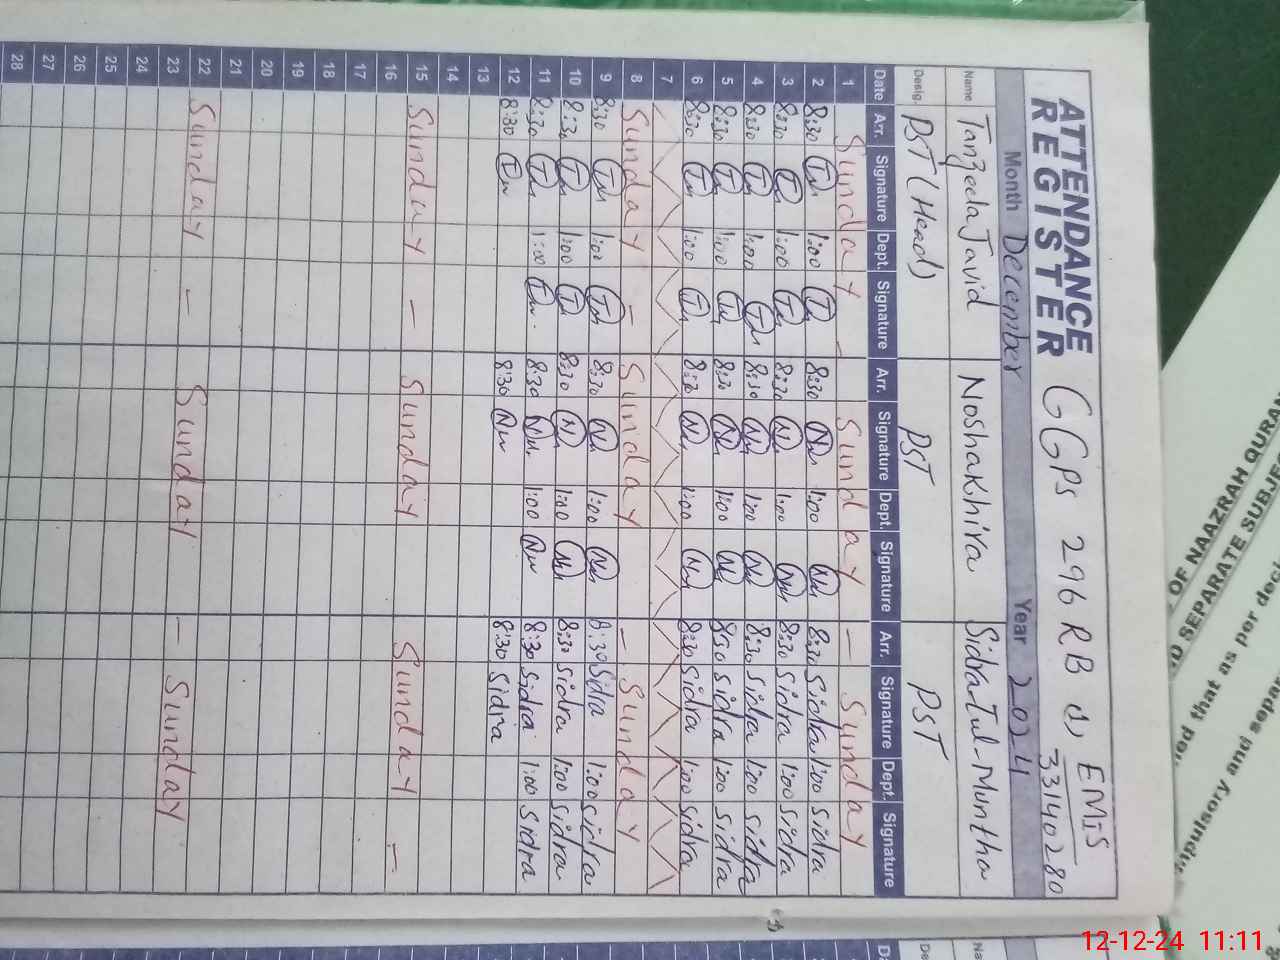 ATTENDANCE REGISTER GGPS 296 RB (1) EMIS 33140280
Month December Year 2024
Name Tanzeela Javid Noshakhira Sidratul-Muntha
Desig. PST (Head) PST PST
Date Arr. Signature Dept. Signature Arr. Signature Dept. Signature Arr. Signature Dept. Signature
1 Sunday - Sunday - Sunday
2 8:30 1:00 8:30 1:00 8:30 Sidra 1:00 Sidra
3 8:30 1:00 8:30 1:00 8:30 Sidra 1:00 Sidra
4 8:30 1:00 8:30 1:00 8:30 Sidra 1:00 Sidra
5 8:30 1:00 8:30 1:00 8:30 Sidra 1:00 Sidra
6 8:30 1:00 8:30 1:00 8:30 Sidra 1:00 Sidra
7
8 Sunday - Sunday - Sunday
9 8:30 1:00 8:30 1:00 8:30 Sidra 1:00 Sidra
10 8:30 1:00 8:30 1:00 8:30 Sidra 1:00 Sidra
11 8:30 1:00 8:30 1:00 8:30 Sidra 1:00 Sidra
12 8:30 8:30 8:30 Sidra
13
14
15 Sunday - Sunday Sunday -
16
17
18
19
20
21
22 Sunday - Sunday - Sunday
23
24
25
26
27
28
OF NAAZRAH QURAN
SEPARATE SUBJEC
that as per deci
mpulsory and separ
12-12-24 11:11